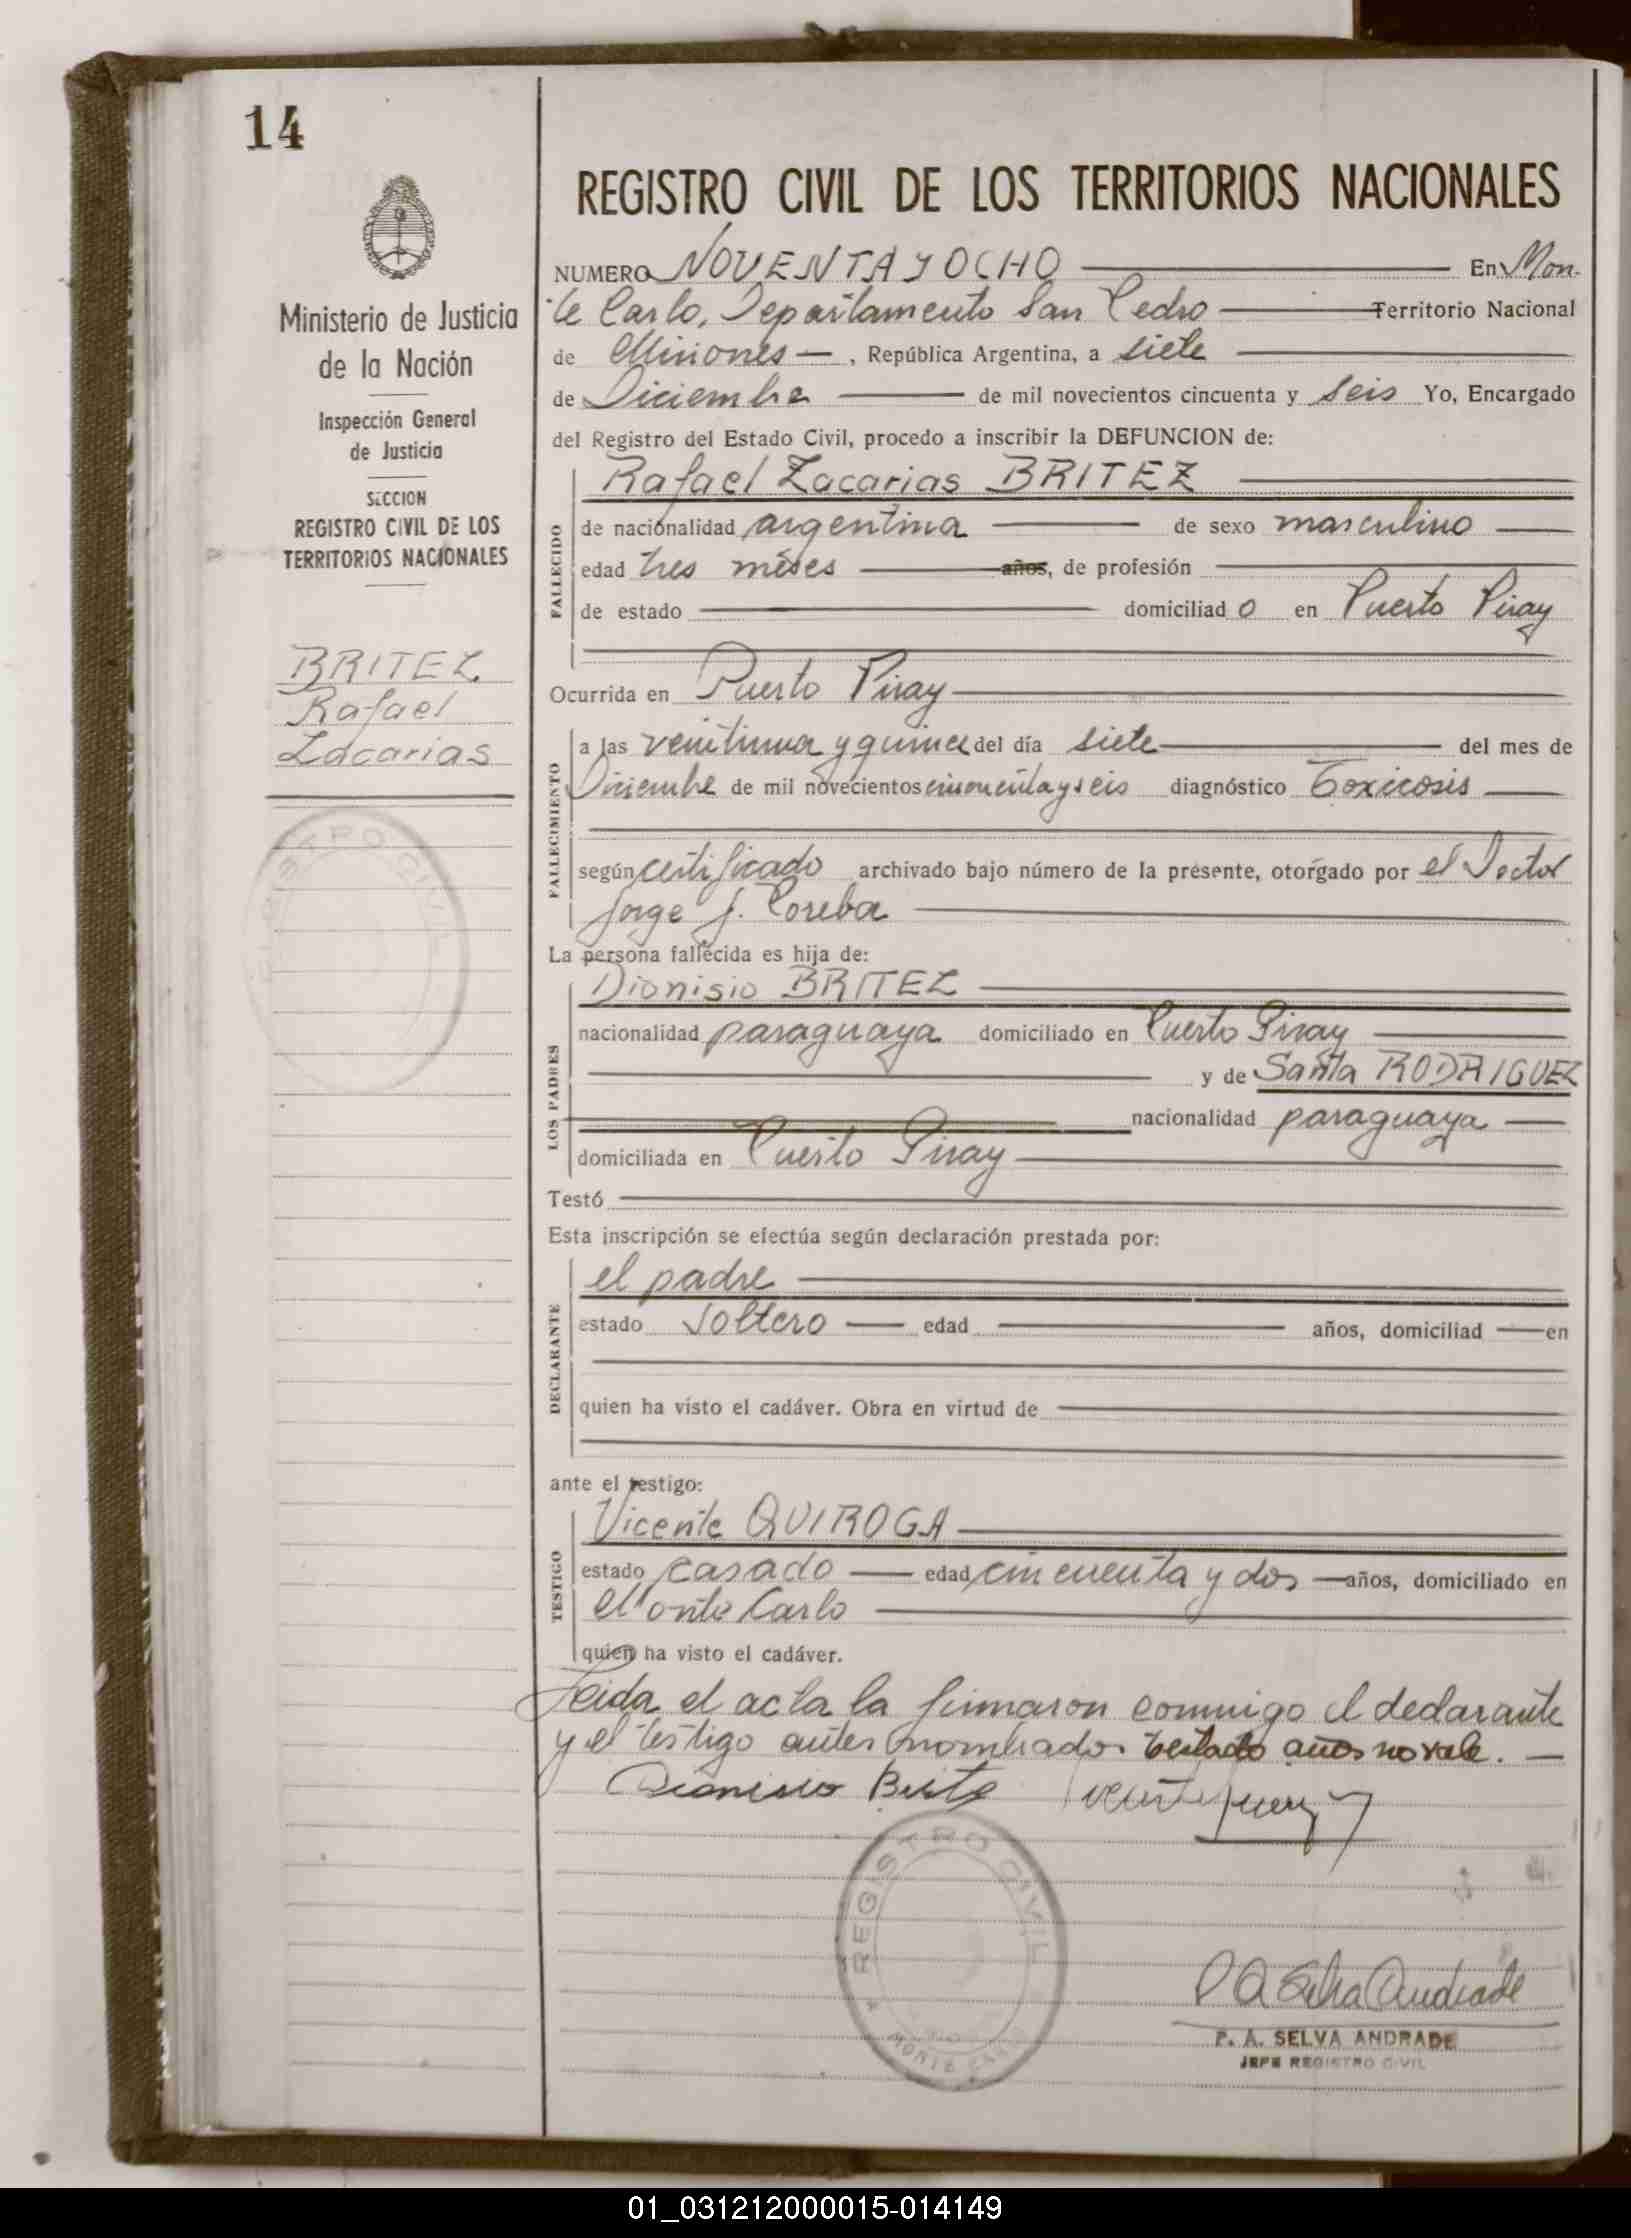 14
Ministerio de Justicia
de la Nación
Inspección General
de Justicia
SECCION
REGISTRO CIVIL DE LOS
TERRITORIOS NACIONALES
BRITEZ
Rafael
Zacarias
REGISTRO CIVIL DE LOS TERRITORIOS NACIONALES
NUMERO NOVENTA Y OCHO En Mon-
te Carlo, Departamento San Pedro Territorio Nacional
de Misiones, República Argentina, a siete
de Diciembre de mil novecientos cincuenta y seis Yo, Encargado
del Registro del Estado Civil, procedo a inscribir la DEFUNCION de:
FALLECIDO
Rafael Zacarias BRITEZ
de nacionalidad argentina de sexo masculino
edad tres meses años, de profesión
de estado domiciliado en Puerto Piray
Ocurrida en Puerto Piray
FALLECIMIENTO
a las y quince del día siete del mes de
Diciembre de mil novecientos cincuenta y seis diagnóstico Toxicosis
según certificado archivado bajo número de la presente, otorgado por el Doctor
Jorge J.
La persona fallecida es hija de:
LOS PADRES
Dionisio BRITEZ
nacionalidad paraguaya domiciliado en Puerto Piray
y de Santa RODRIGUEZ
nacionalidad paraguaya
domiciliada en Puerto Piray
Testó
Esta inscripción se efectúa según declaración prestada por:
DECLARANTE
el padre
estado soltero edad años, domiciliad en
quien ha visto el cadáver. Obra en virtud de
ante el testigo:
TESTIGO
Vicente QUIROGA
estado casado edad cincuenta y dos años, domiciliado en
Monte Carlo
quien ha visto el cadáver.
Leida el acta la firmaron conmigo el declarante
y el testigo antes nombrados testado años no vale.
Dionisio
REGISTRO CIVIL
MONTE CARLO
P A Selva Andrade
P. A. SELVA ANDRADE
JEFE REGISTRO CIVIL
01_031212000015-014149